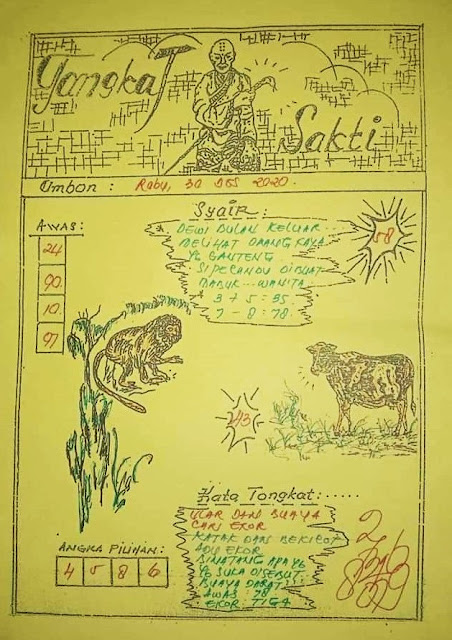 Tongkat
Sakti
Ombon : Rabu, 30 DES 2020.
AWAS:
24
90
10
97
Syair:
DEWI BULAN KELUAR
MELIHAT ORANG KAYA
YG GANTENG
SIPECANDU DIBUAT
MABUK...WANITA
3 + 5 = 35
7 - 8 = 78
58
43
Kata Tongkat:.....
ULAR DAN BUAYA
CARI EKOR
KATAK DAN BEKICOT
ADU EKOR
BINATANG APA YG
YG SUKA DISEBUT
BUAYA DARAT
AWAS : 78
EKOR : TIGA
ANGKA PILIHAN:
4 5 8 6